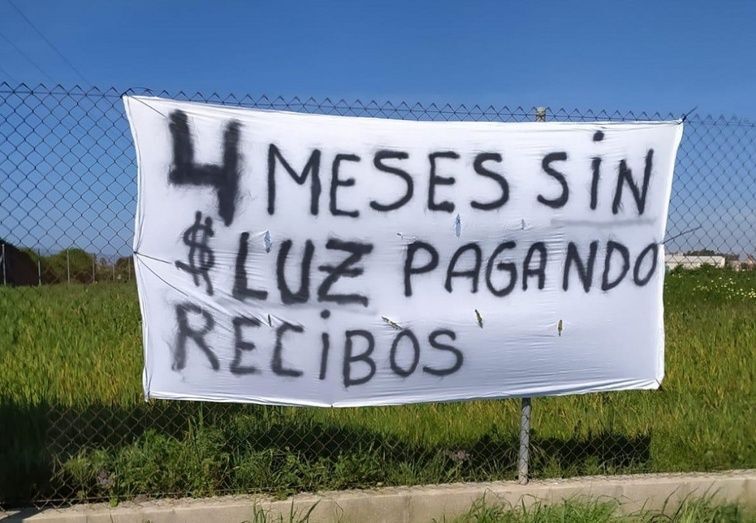 4 MESES SiN
$ LUZ PAGANDO
RECiBOS